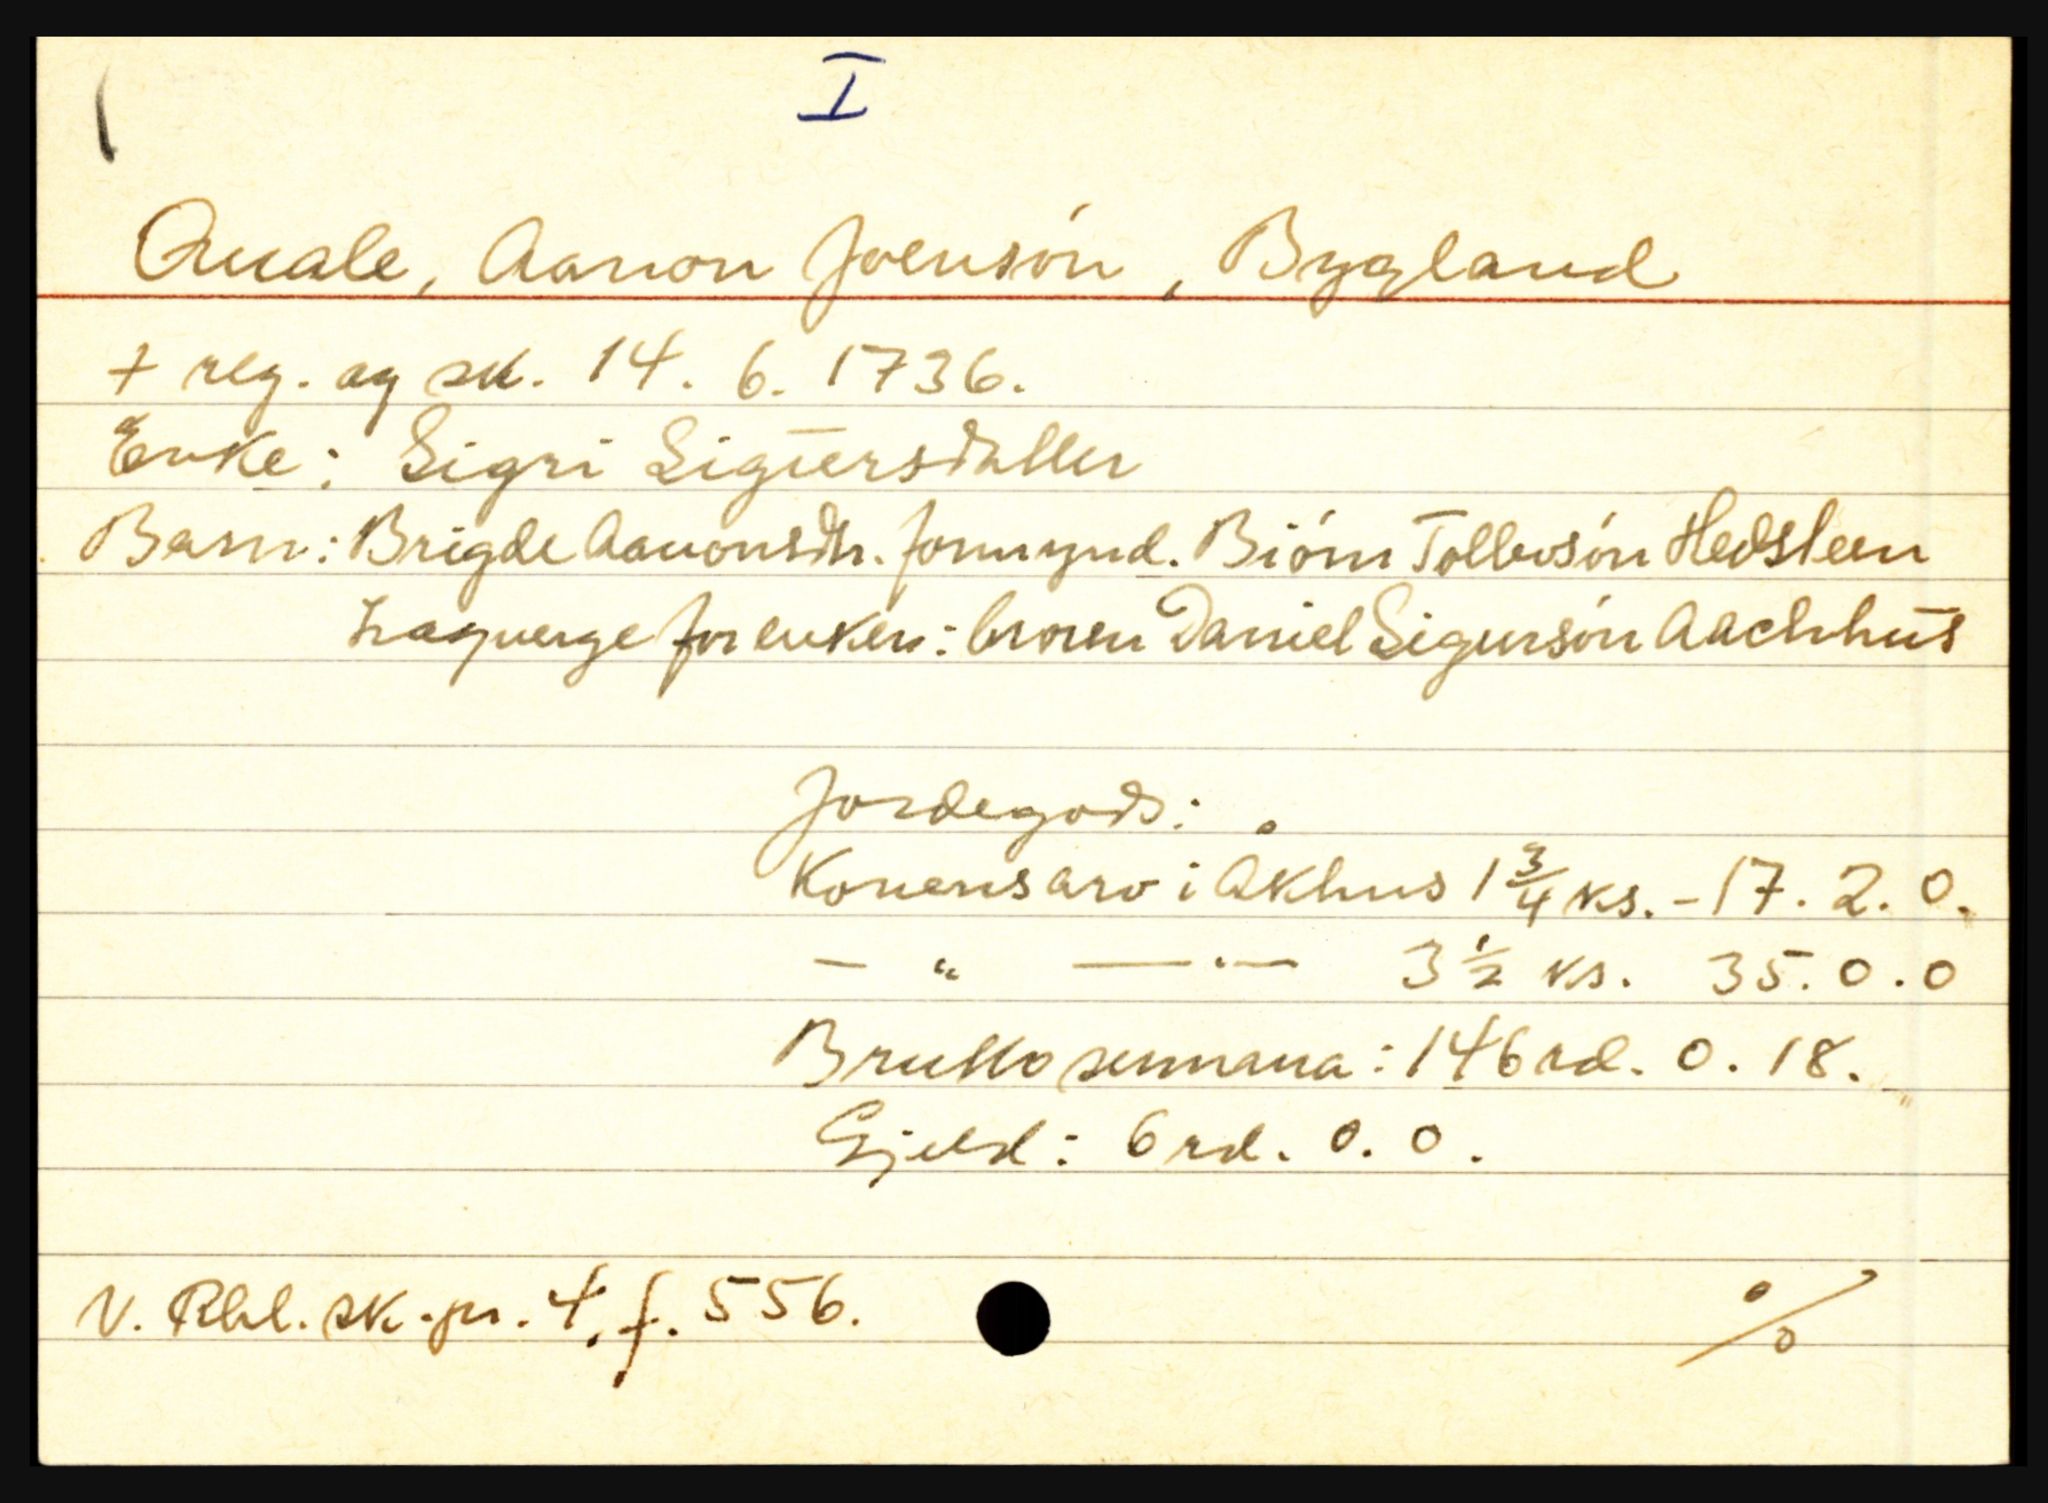 I
Quale, Aanon Joensón, Bygland
+ reg. og sk. 14. 6. 1736.
Enke: Sigri Sigūrsdatter
Barn: Brigde Aanonsdtr. formynd. Biórn Tollevsón
Lagverge for enken: broren Daniel Sigursón Aachhūs
Jordegods:
Konens arv i Åkhus 1 3/4 ks. - 17. 2. 0.
— " — " — 3 1/2 ks. 35. 0. 0
Brutto summa: 146 rd. 0. 18.
Gjeld: 6 rd. 0. 0.
V. Rbl. sk. pr. 4, f. 556.
%